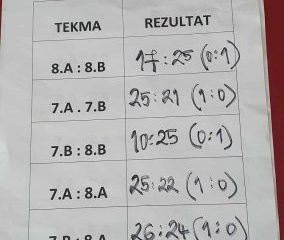 TEKMA REZULTAT
8.A : 8.B 17:25 (0:1)
7.A . 7.B 25:21 (1:0)
7.B : 8.B 10:25 (0:1)
7.A : 8.A 25:22 (1:0)
7.B : 8.A 26:24 (1:0)